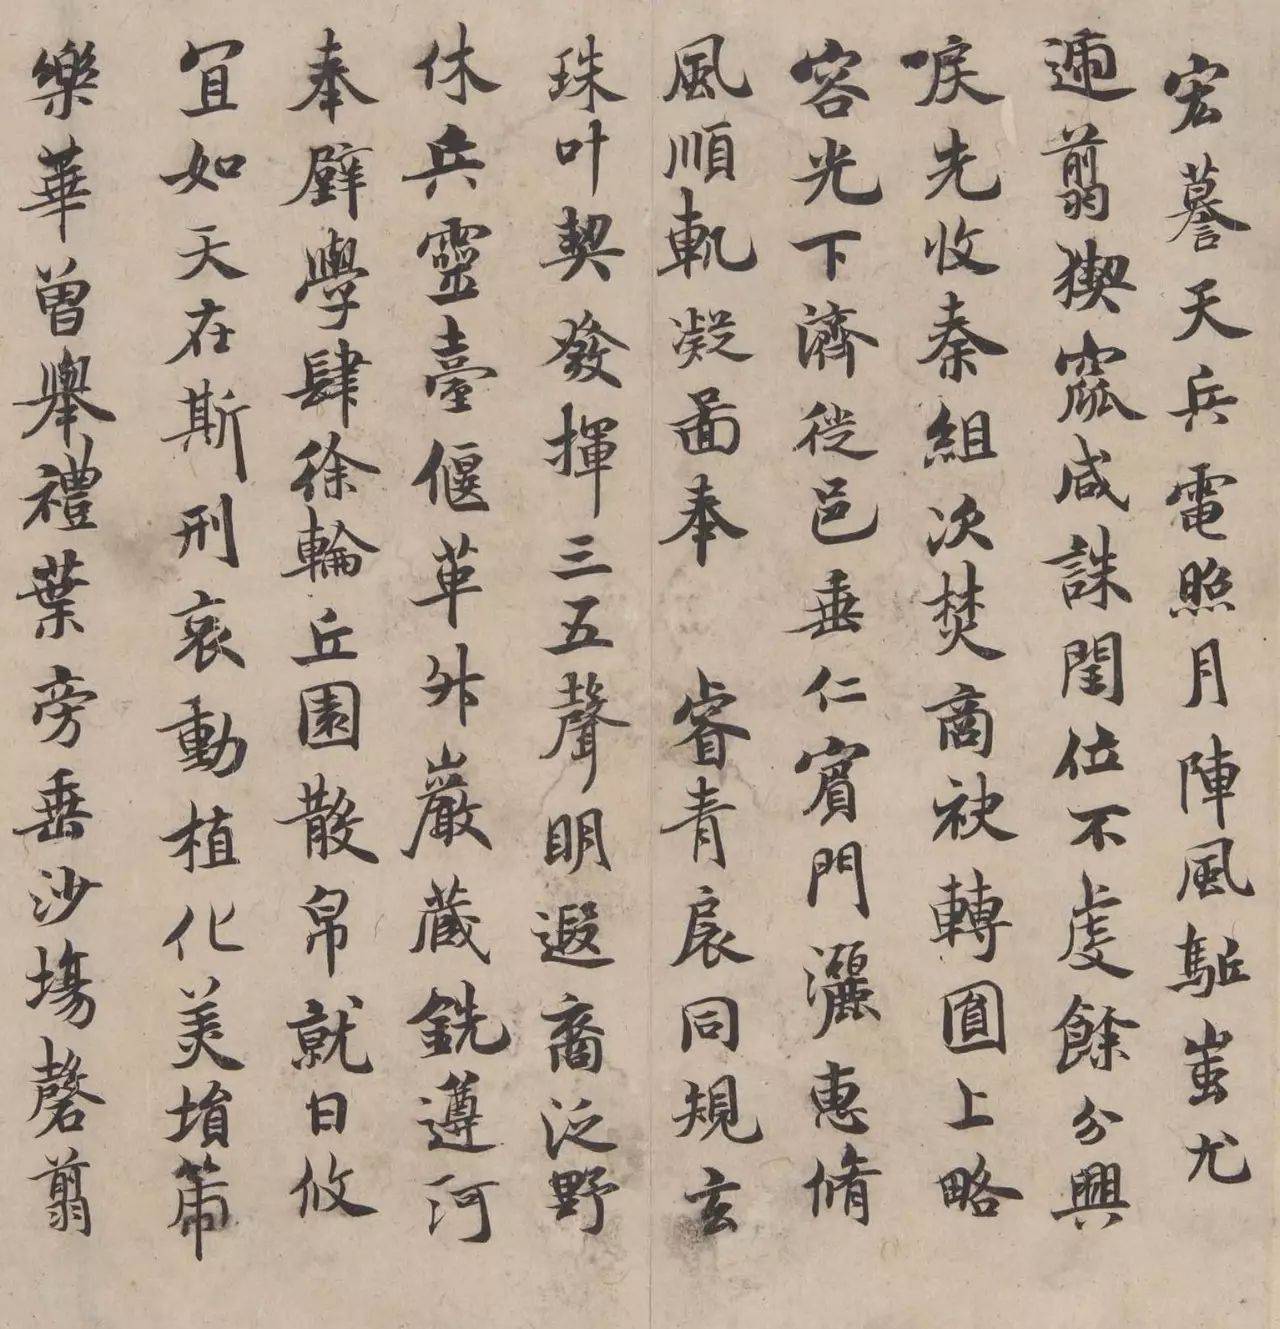 宏謩天兵電照月陣風駈蚩尤
迺翦猰窳咸誅閏位不虔餘分興
唳先收秦組次焚商袂轉圓上略
容光下濟從邑垂仁賓門灑惠脩
風順軌凝啚奉　睿青扆同規玄
珠叶契發揮三五聲明遐裔泛野
休兵靈臺偃革舛巖蔵銑遵河
奉璧學肆徐輪丘園散帛就日攸
宜如天在斯刑哀動植化美埍箒
樂華曾舉禮葉旁垂沙塲罄翦